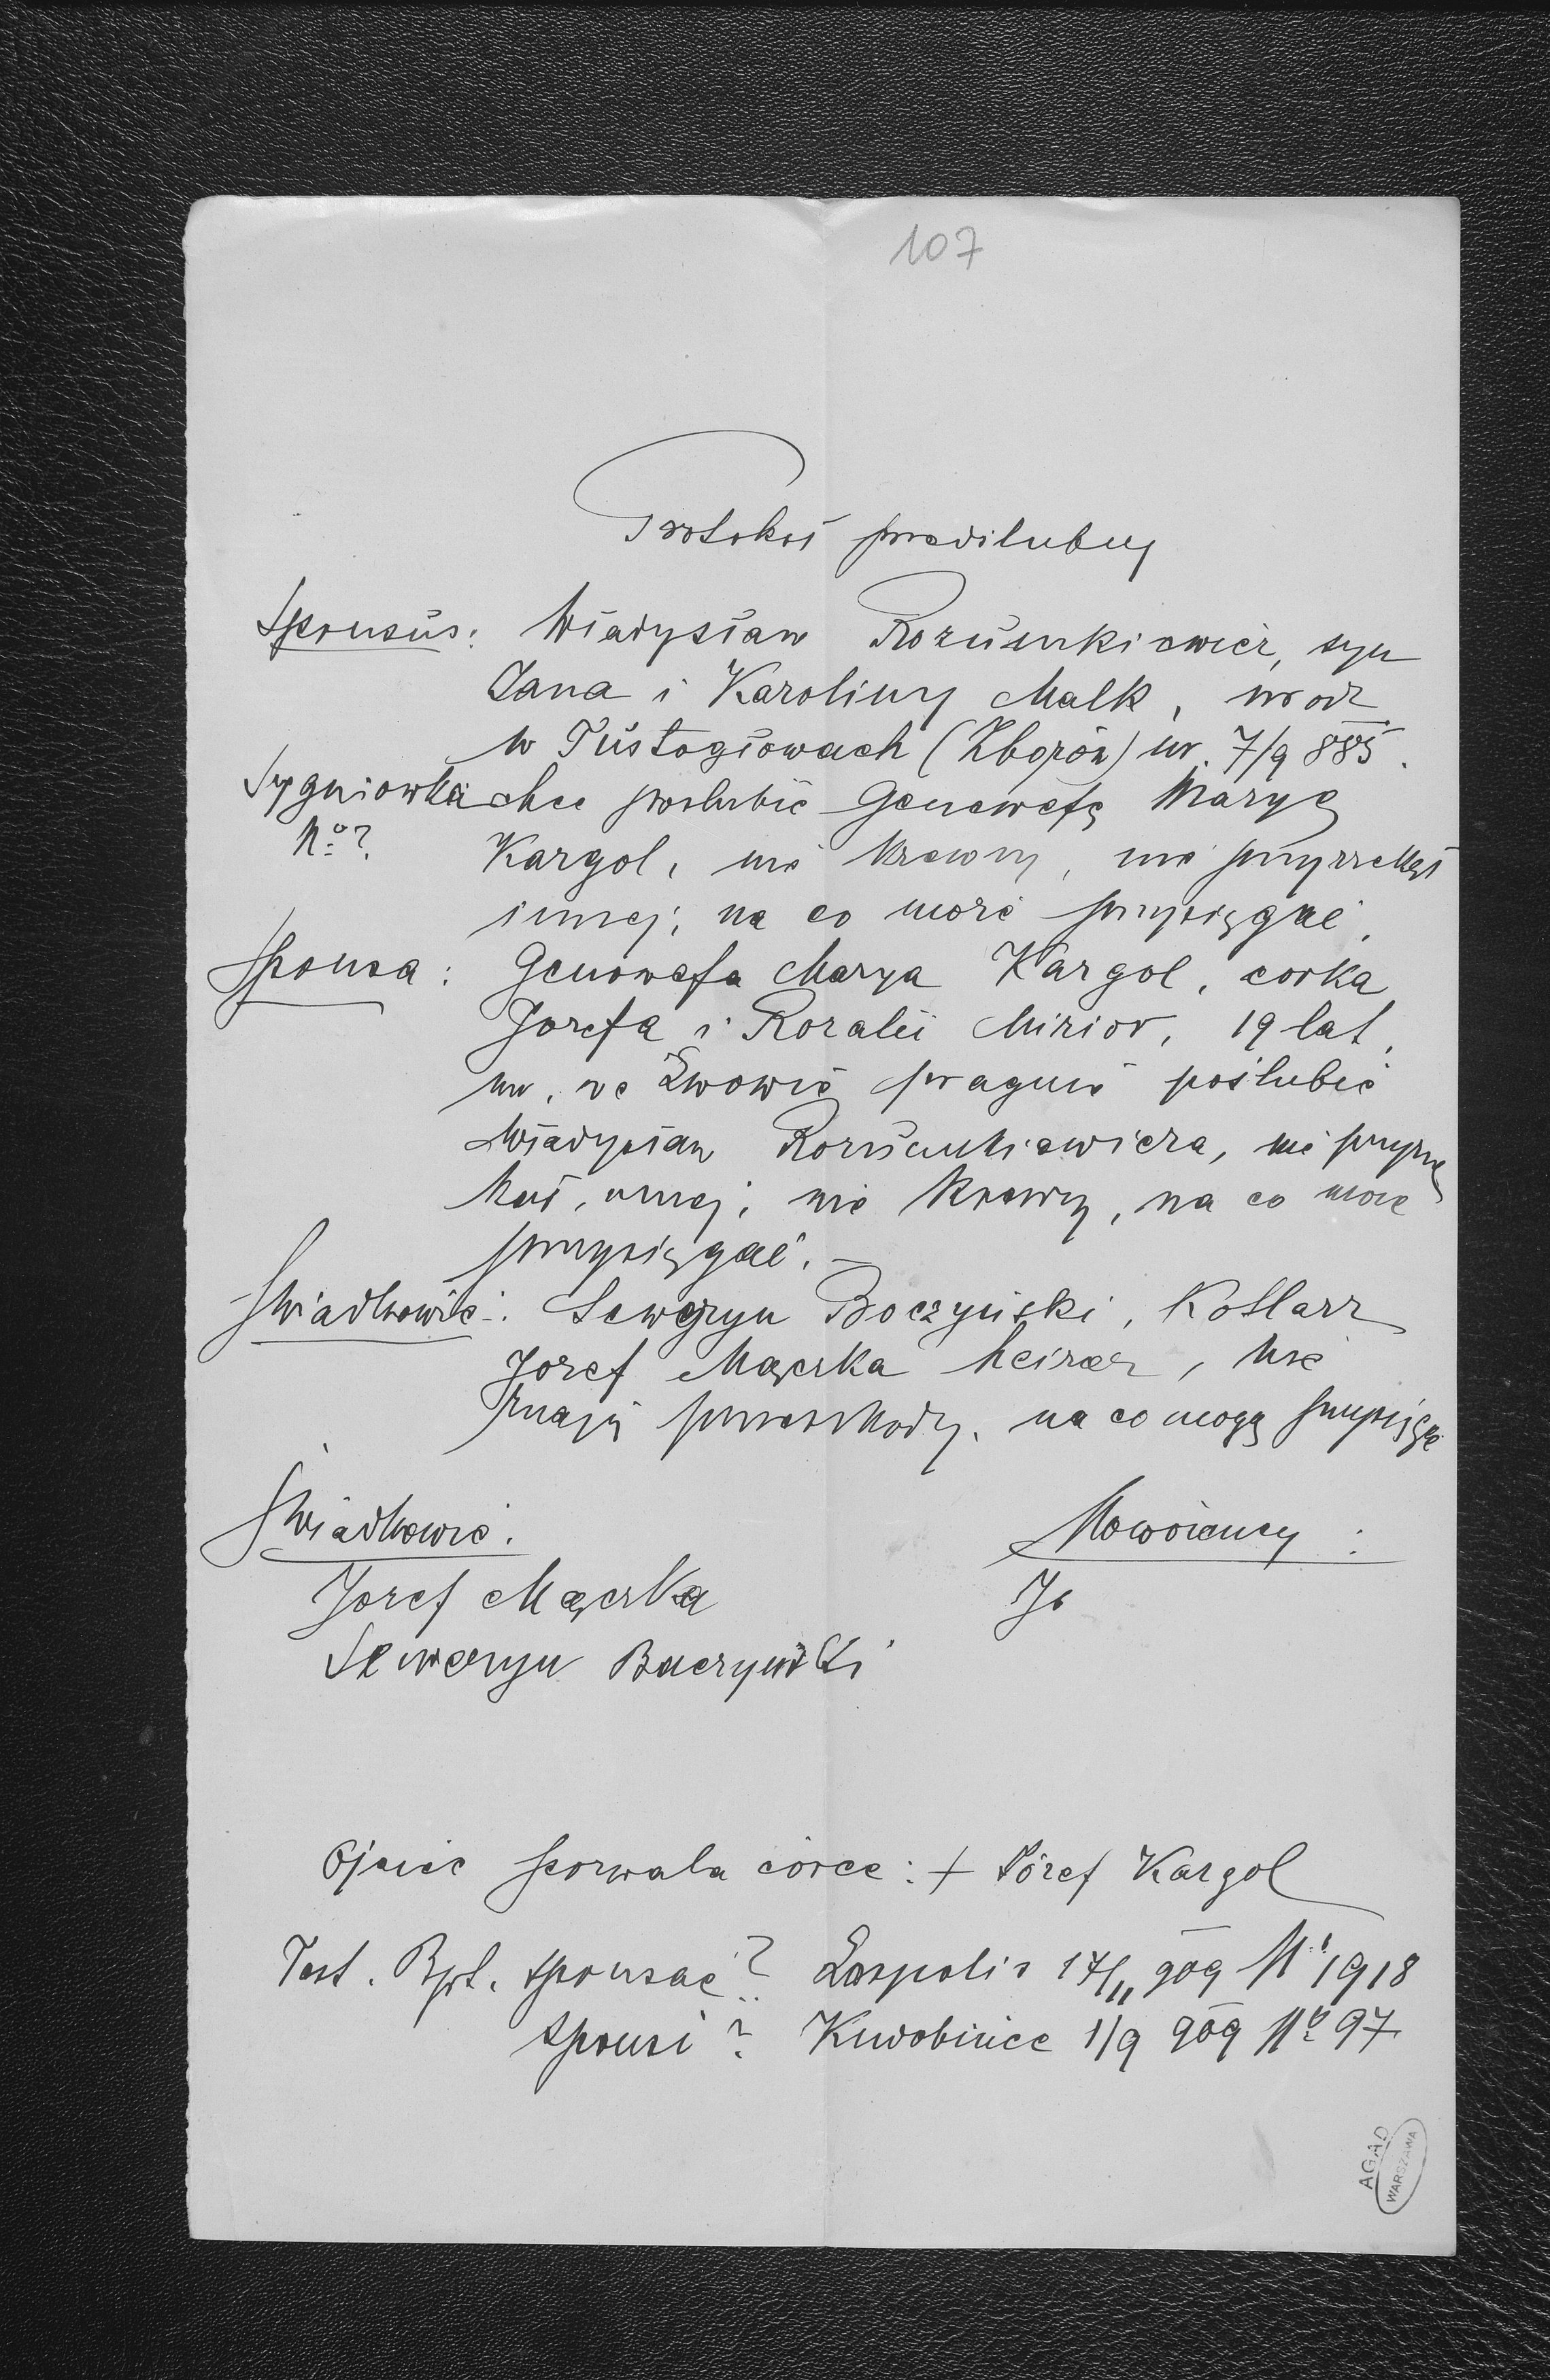 107
Protokół przedślubny
Sponsus: Władysław Rozumkiewicz, syn
Jana i Karoliny Malk, urodz
w Tustogłowach (Zborów) ur. 7/9 885.
Sygniówka chce poslubić Genowefę Maryę
No ? Kargol, nie krewny, nie przyrzekł
innej, na co może przysięgać.
Sponsa: Genowefa Marya Kargol, corka
Jozefa i Rozalii Mizior, 19 lat,
ur. we Lwowie pragnie poślubić
Władysław Rozumkiewicza, nie przyrze
kał, innej, nie krewny, na co może
przysięgać. —
Swiadkowie: Seweryn Boczyński, Kotlarz
Jozef Mączka, nie
znają przeszkody, na co mogą przysięgać
Swiadkowie: Nowożeńcy:
Jozef Mączka Jó
Seweryn Baczyński
Ojciec pozwala córce: + Józef Kargol
Test. Bpt. sponsae? Leopolis 17/11 909 No 1918
sponsi? 1/9 909 No 97.
AGAD
WARSZAWA